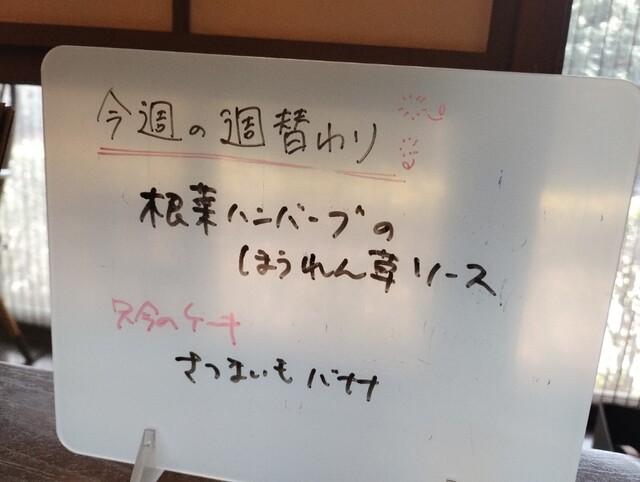 今週の週替わり
根菜ハンバーグの
ほうれん草ソース
只今のケーキ
さつまいもバナナ